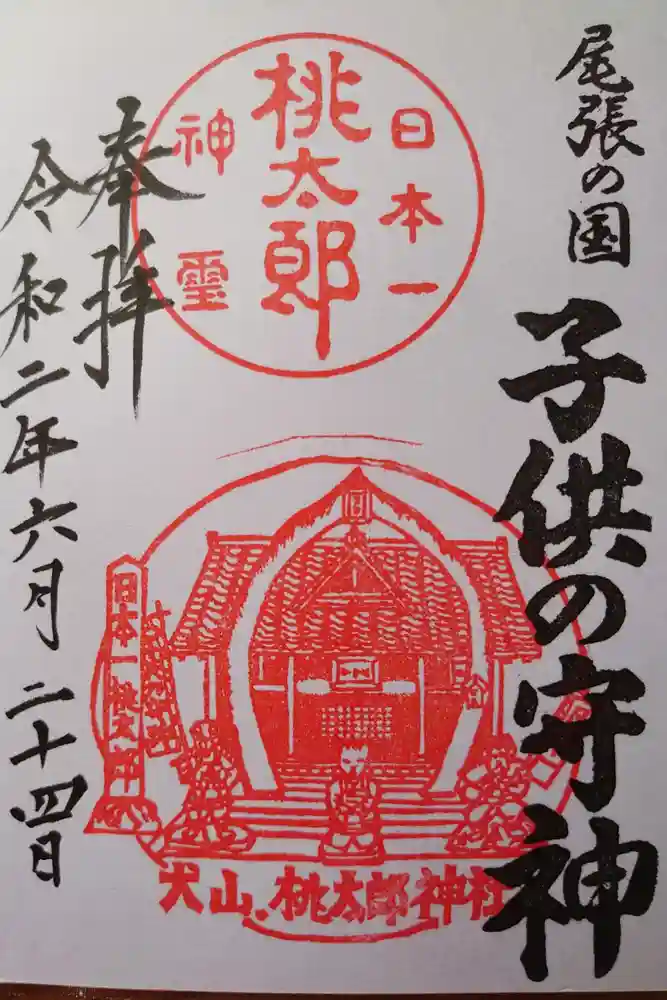 尾張の国
子供の守神
日本一
桃太郎
神璽
奉拝
令和二年六月二十四日
日本一桃太郎
犬山、桃太郎神社